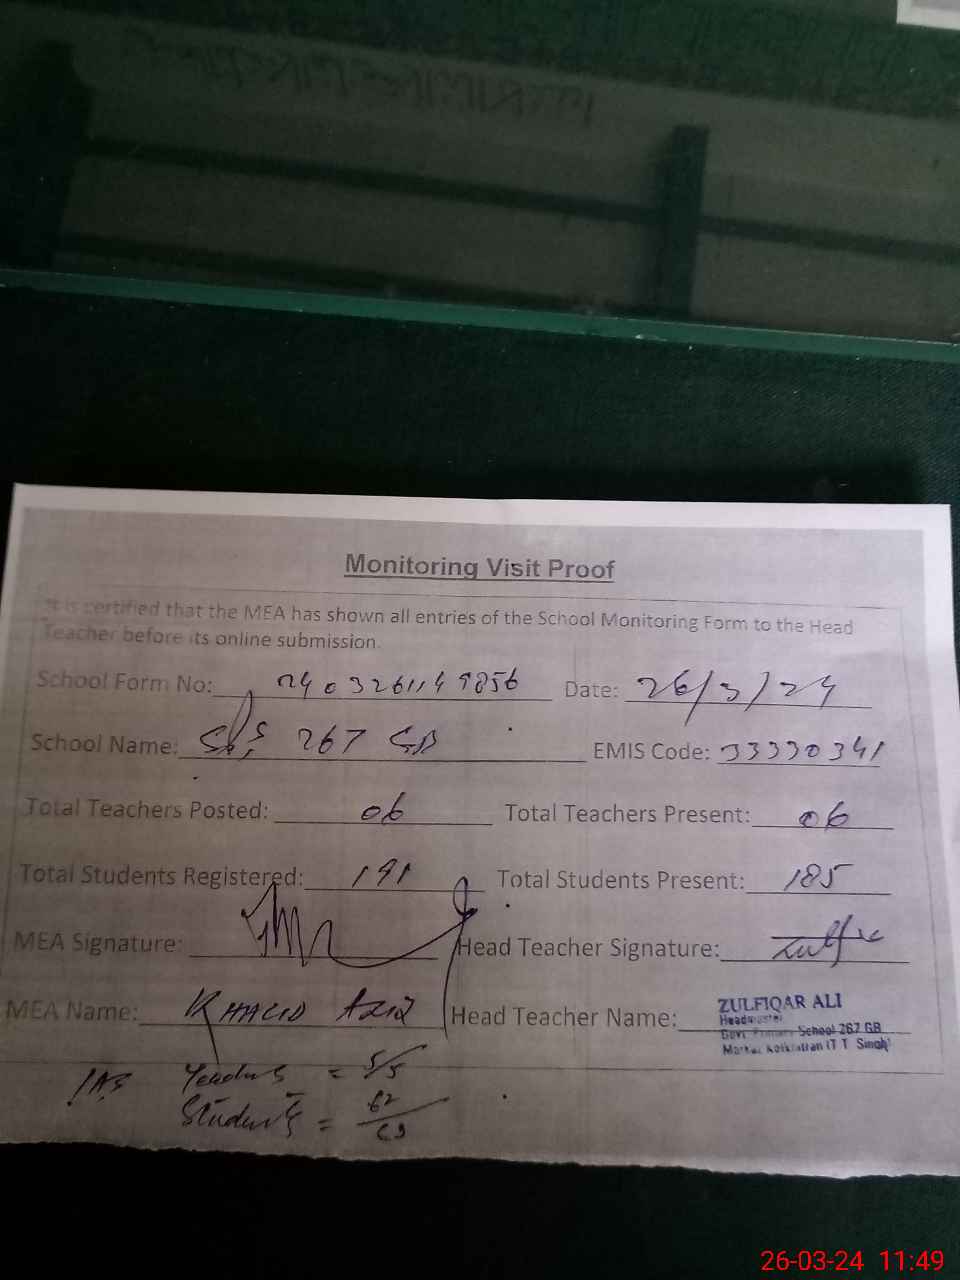 Monitoring Visit Proof
It is certified that the MEA has shown all entries of the School Monitoring Form to the Head
Teacher before its online submission.
School Form No: Date: 26/3/24
School Name: 267 GB EMIS Code: 33330341
Total Teachers Posted: 06 Total Teachers Present: 06
Total Students Registered: 191 Total Students Present: 185
MEA Signature: Head Teacher Signature:
MEA Name: KHALID AZIZ Head Teacher Name: ZULFIQAR ALI
Headmaster
Govt Primary School 267 GB
Markaz (T T Singh)
Teachers = 5/5
Students = 62/
26-03-24 11:49